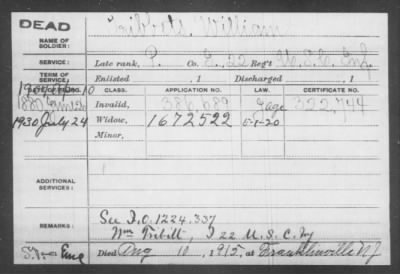 DEAD
NAME OF SOLDIER: Tribbett, William
SERVICE: Late rank, P. Co. I, 22 Reg't U.S.C. Inf.
TERM OF SERVICE: Enlisted , 1 Discharged , 1
DATE OF FILING. CLASS. APPLICATION NO. LAW. CERTIFICATE NO.
1880 Invalid, 386,689 322,744
1930 July 24 Widow, 1672522 5-1-20
Minor,
ADDITIONAL SERVICES:
REMARKS: See I.O. 1224.337
Wm Tribitt, I 22 U.S.C. Iny
Died Aug 10, 1915, at Franklinville N J